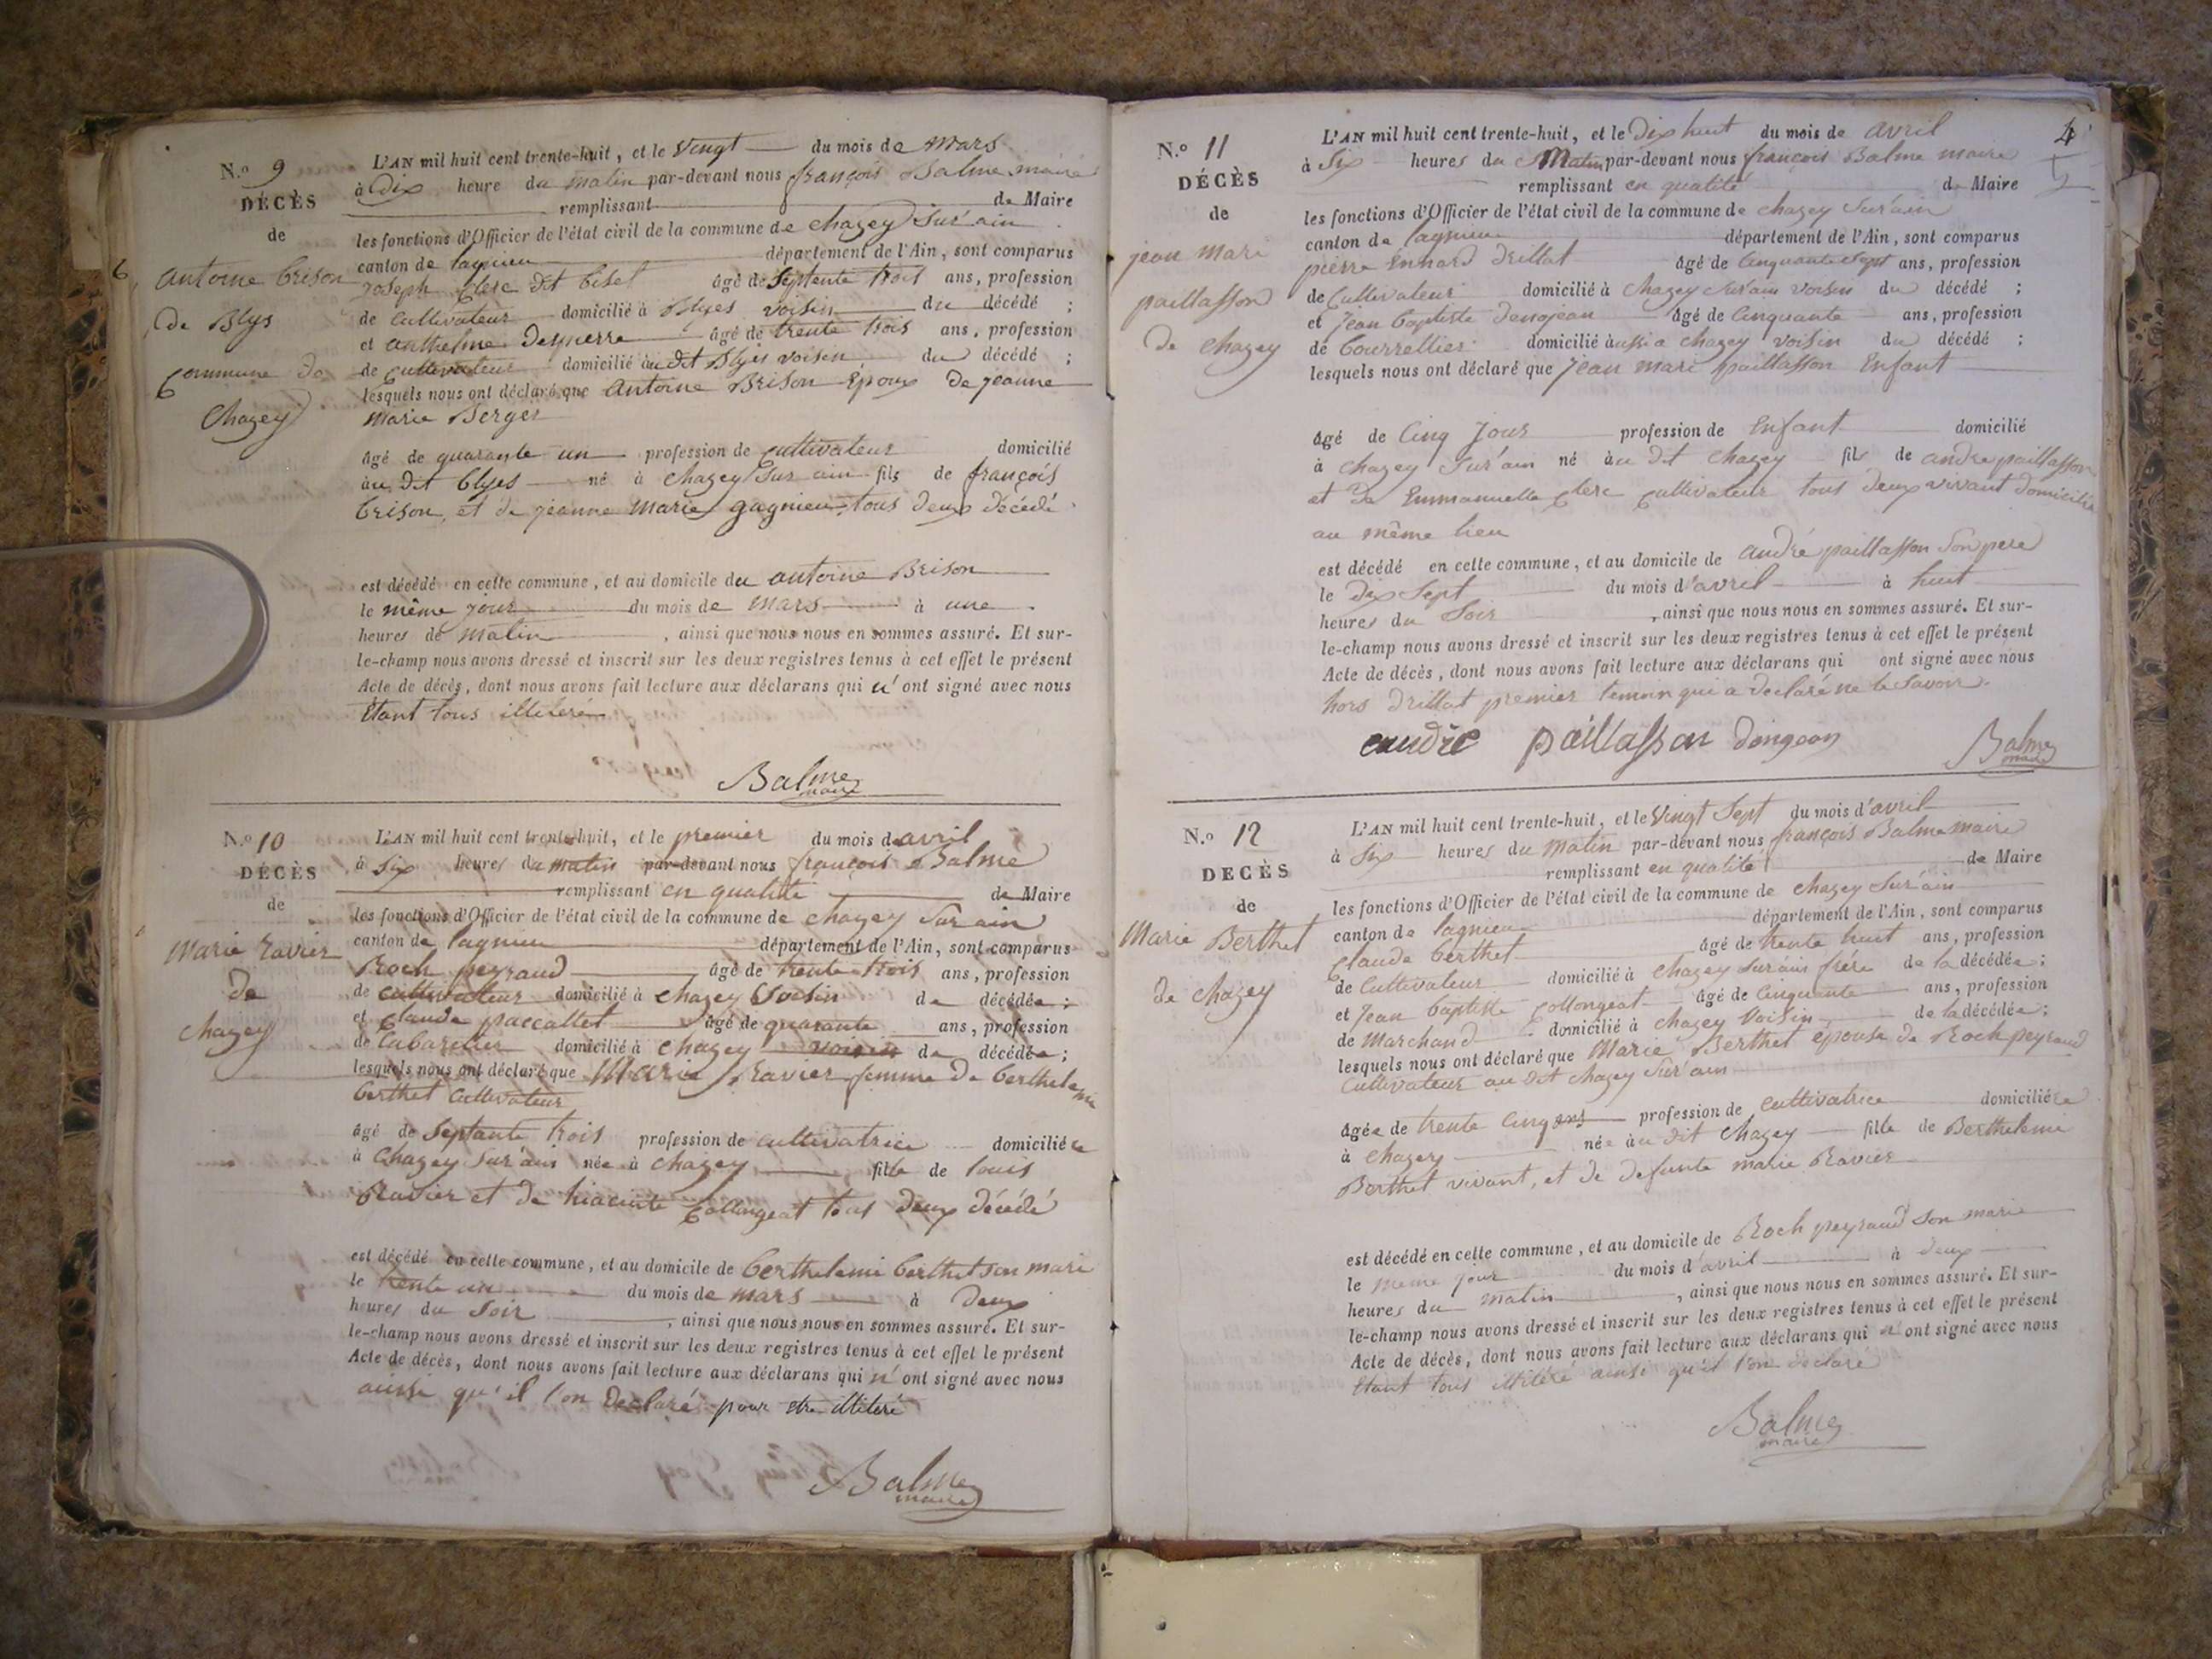 N.° 9
DÉCÈS
de
antoine brison
de Blys
Commune de
Chazey
L'AN mil huit cent trente-huit, et le vingt du mois de mars
à dix heure du matin par-devant nous françois Balme maire
remplissant de Maire
les fonctions d'Officier de l'état civil de la commune de chazey sur ain
canton de lagnieu département de l'Ain, sont comparus
joseph Clerc dit bisel âgé de septente trois ans, profession
de cultivateur domicilié à Blyes voisin du décédé ;
et anthelme âgé de trente trois ans, profession
de cultivateur domicilié au dit Blyes voisin du décédé ;
lesquels nous ont déclaré que antoine Brison Époux de jeanne
marie Berger
âgé de quarante un profession de cultivateur domicilié
au dit blyes né à chazey sur ain fils de françois
brison, et de jeanne marie gagnieu, tous deux décédé
est décédé en cette commune, et au domicile du antoine Brison
le même jour du mois de mars à une
heures de matin , ainsi que nous nous en sommes assuré. Et sur-
le-champ nous avons dressé et inscrit sur les deux registres tenus à cet effet le présent
Acte de décès, dont nous avons fait lecture aux déclarans qui n' ont signé avec nous
Étant tous illiteré
Balme
maire
N.° 10
DÉCÈS
de
Marie Ravier
de
chazey
L'AN mil huit cent trente-huit, et le premier du mois d avril
à six heures du matin par-devant nous françois Balme
remplissant en qualité de Maire
les fonctions d'Officier de l'état civil de la commune de chazey sur ain
canton de lagnieu département de l'Ain, sont comparus
Roch peyraud âgé de trente trois ans, profession
de cultivateur domicilié à chazey voisin de décédée ;
et Claude paccallet âgé de quarante ans, profession
de Cabaretier domicilié à chazey voisin de décédée ;
lesquels nous ont déclaré que Marie Ravier femme de berthelemi
berthet Cultivateur
âgé de septante trois profession de cultivatrice domicilié e
à Chazey sur ain née à chazey fille de louis
Ravier et de hiacinte Collongeat tous deux décédé
est décédé en cette commune, et au domicile de berthelemi berthet son mari
le trente un du mois de mars à deux
heures du soir , ainsi que nous nous en sommes assuré. Et sur-
le-champ nous avons dressé et inscrit sur les deux registres tenus à cet effet le présent
Acte de décès, dont nous avons fait lecture aux déclarans qui n' ont signé avec nous
ainsi qu'il l'on declaré pour être illiteré
Balme
maire
4
N.° 11
DÉCÈS
de
jean mari
paillasson
de chazey
L'AN mil huit cent trente-huit, et le dix huit du mois de avril
à six heures du Matin par-devant nous françois Balme maire
remplissant en qualité de Maire
les fonctions d'Officier de l'état civil de la commune de chazey sur ain
canton de lagnieu département de l'Ain, sont comparus
pierre Ennard drillat âgé de Cinquante sept ans, profession
de Cultivateur domicilié à chazey sur ain voisin du décédé ;
et Jean baptiste âgé de Cinquante ans, profession
de bourrellier domicilié à ussi a chazey voisin du décédé ;
lesquels nous ont déclaré que Jean mari paillasson Enfant
âgé de Cinq Jour profession de Enfant domicilié
à chazey sur ain né au dit chazey fils de andré paillasson
et de Emmanuelle Clerc cultivateur tous deux vivant domicilié
au même lieu
est décédé en cette commune, et au domicile de andré paillasson son pere
le dix sept du mois d'avril à huit
heures du soir , ainsi que nous nous en sommes assuré. Et sur-
le-champ nous avons dressé et inscrit sur les deux registres tenus à cet effet le présent
Acte de décès, dont nous avons fait lecture aux déclarans qui ont signé avec nous
hors drillat premier temoin qui a declaré ne le savoir.
andré paillasson dongeon
Balme
maire
N.° 12
DECÈS
de
Marie Berthet
de chazey
L'AN mil huit cent trente-huit, et le vingt sept du mois d'avril
à six heures du matin par-devant nous françois Balme maire
remplissant en qualité de Maire
les fonctions d'Officier de l'état civil de la commune de chazey sur ain
canton de lagnieu département de l'Ain, sont comparus
Claude berthet âgé de trente huit ans, profession
de Cultivateur domicilié à chazey sur ain frére de la décédée ;
et Jean baptiste Collongeat âgé de Cinquante ans, profession
de Marchand domicilié à chazey Voisin de la décédée ;
lesquels nous ont déclaré que Marie Berthet épouse de Roch peyraud
Cultivateur au dit chazey sur ain
âgée de trente cinq ans profession de cultivatrice domicilié e
à chazey née au dit chazey fille de Berthelemi
Berthet vivant, et de defunte marie Ravier
est décédé en cette commune, et au domicile de Roch peyraud son marie
le meme jour du mois d'avril à deux
heures du matin , ainsi que nous nous en sommes assuré. Et sur-
le-champ nous avons dressé et inscrit sur les deux registres tenus à cet effet le présent
Acte de décès, dont nous avons fait lecture aux déclarans qui n' ont signé avec nous
Etant tous illiteré ainsi qu'il l'on declaré
Balme
maire